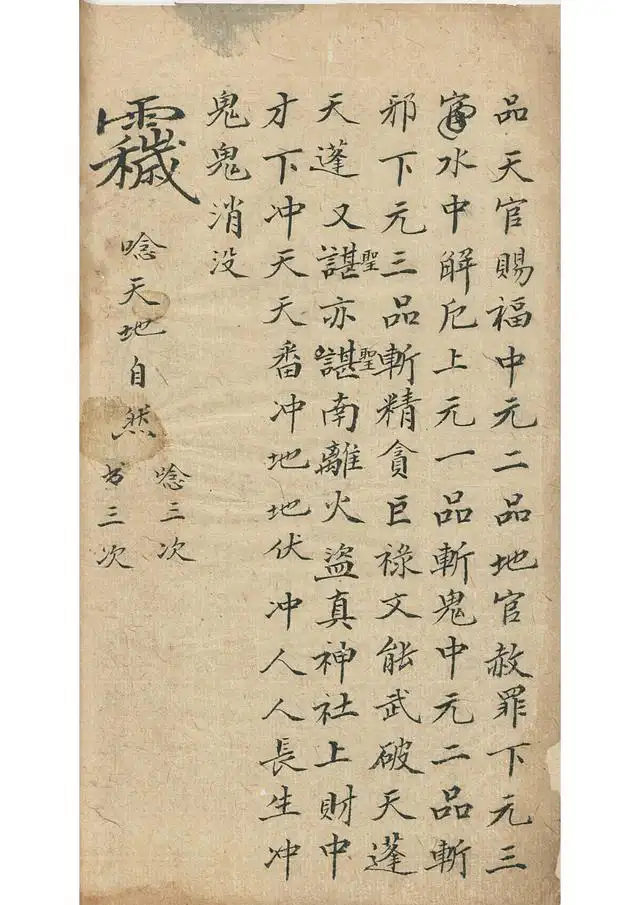 品天官賜福中元二品地官赦罪下元三
官水中解厄上元一品斬鬼中元二品斬
邪下元三品斬精貪巨祿文能武破天蓬
天蓬又諶聖亦諶聖南離火盜真神社上財中
才下冲天天番冲地地伏冲人人長生冲
鬼鬼消没
唸天地自然
唸三次
书三次